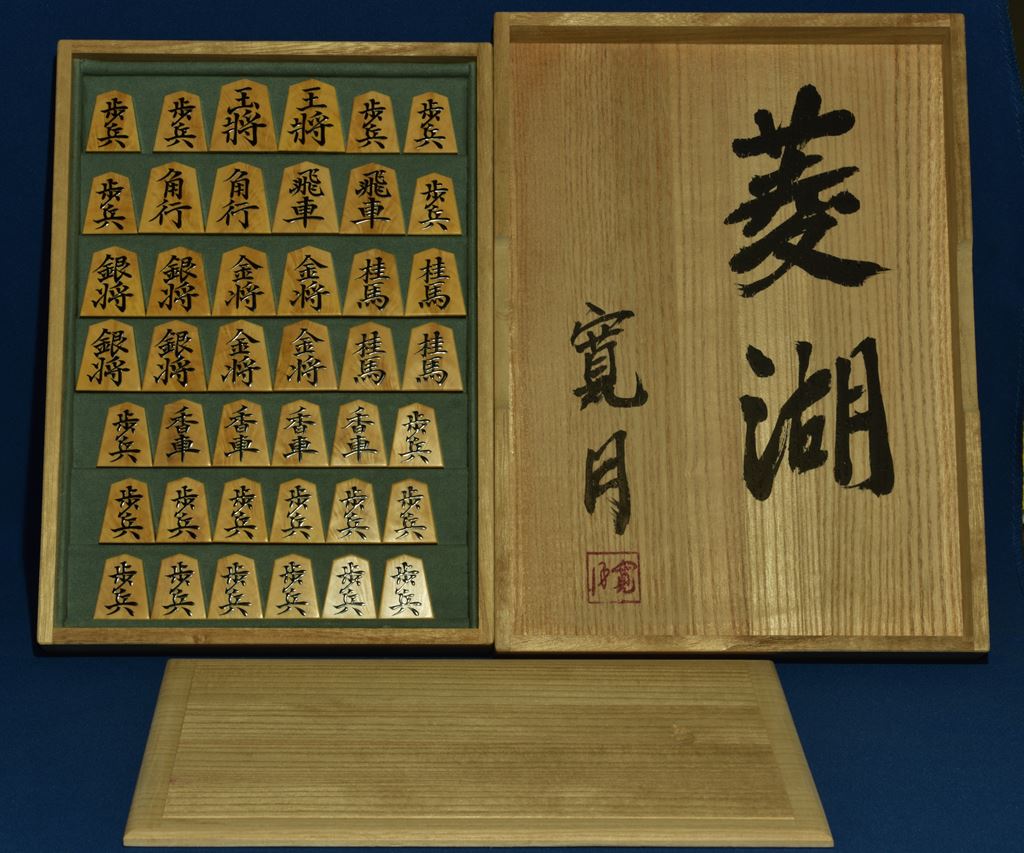 歩兵 歩兵 玉將 王將 歩兵 歩兵
歩兵 角行 角行 飛車 飛車 歩兵
銀将 銀将 金将 金将 桂馬 桂馬
銀将 銀将 金将 金将 桂馬 桂馬
歩兵 香車 香車 香車 香車 歩兵
歩兵 歩兵 歩兵 歩兵 歩兵 歩兵
歩兵 歩兵 歩兵 歩兵 歩兵 歩兵
菱湖
寛月